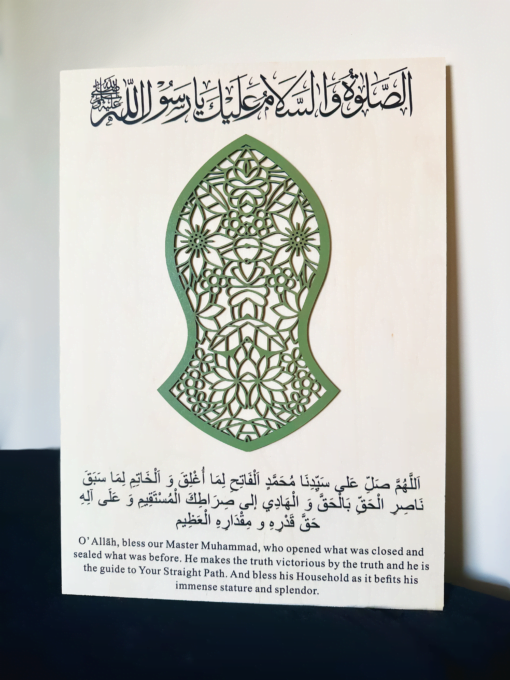 الصَّلوٰةُ وَالسَّلَامُ عَلَيْكَ يَا رَسُوْلَ اللّٰه ﷺ
اَللَّهُمَّ صَلِّ عَلَى سَيِّدِنَا مُحَمَّدٍ اَلْفَاتِحِ لِمَا أُغْلِقَ وَ اَلْخَاتِمِ لِمَا سَبَقَ
نَاصِرِ الْحَقِّ بَالْحَقِّ وَ الْهَادِي إِلى صِرَاطِكَ الْمُسْتَقِيمِ وَ عَلَى آلِهِ
حَقَّ قَدْرِهِ و مِقْدَارِهِ الْعَظِيم
O' Allāh, bless our Master Muhammad, who opened what was closed and
sealed what was before. He makes the truth victorious by the truth and he is
the guide to Your Straight Path. And bless his Household as it befits his
immense stature and splendor.